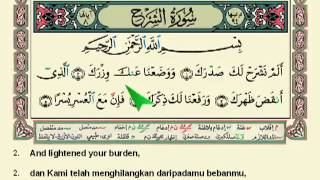 سُورَةُ الشَّرْحِ
بِسْمِ اللَّهِ الرَّحْمَٰنِ الرَّحِيمِ
أَلَمْ نَشْرَحْ لَكَ صَدْرَكَ ۝ وَوَضَعْنَا عَنكَ وِزْرَكَ ۝ الَّذِي
أَنقَضَ ظَهْرَكَ ۝ وَرَفَعْنَا لَكَ ذِكْرَكَ ۝ فَإِنَّ مَعَ الْعُسْرِ يُسْرًا ۝
2. And lightened your burden,
2. dan Kami telah menghilangkan daripadamu bebanmu,